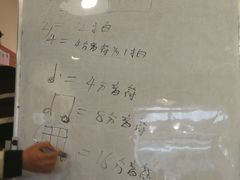 2 = 2拍
4 = 4分音符为1拍
= 4分音符
= 8分音符
= 16分音符